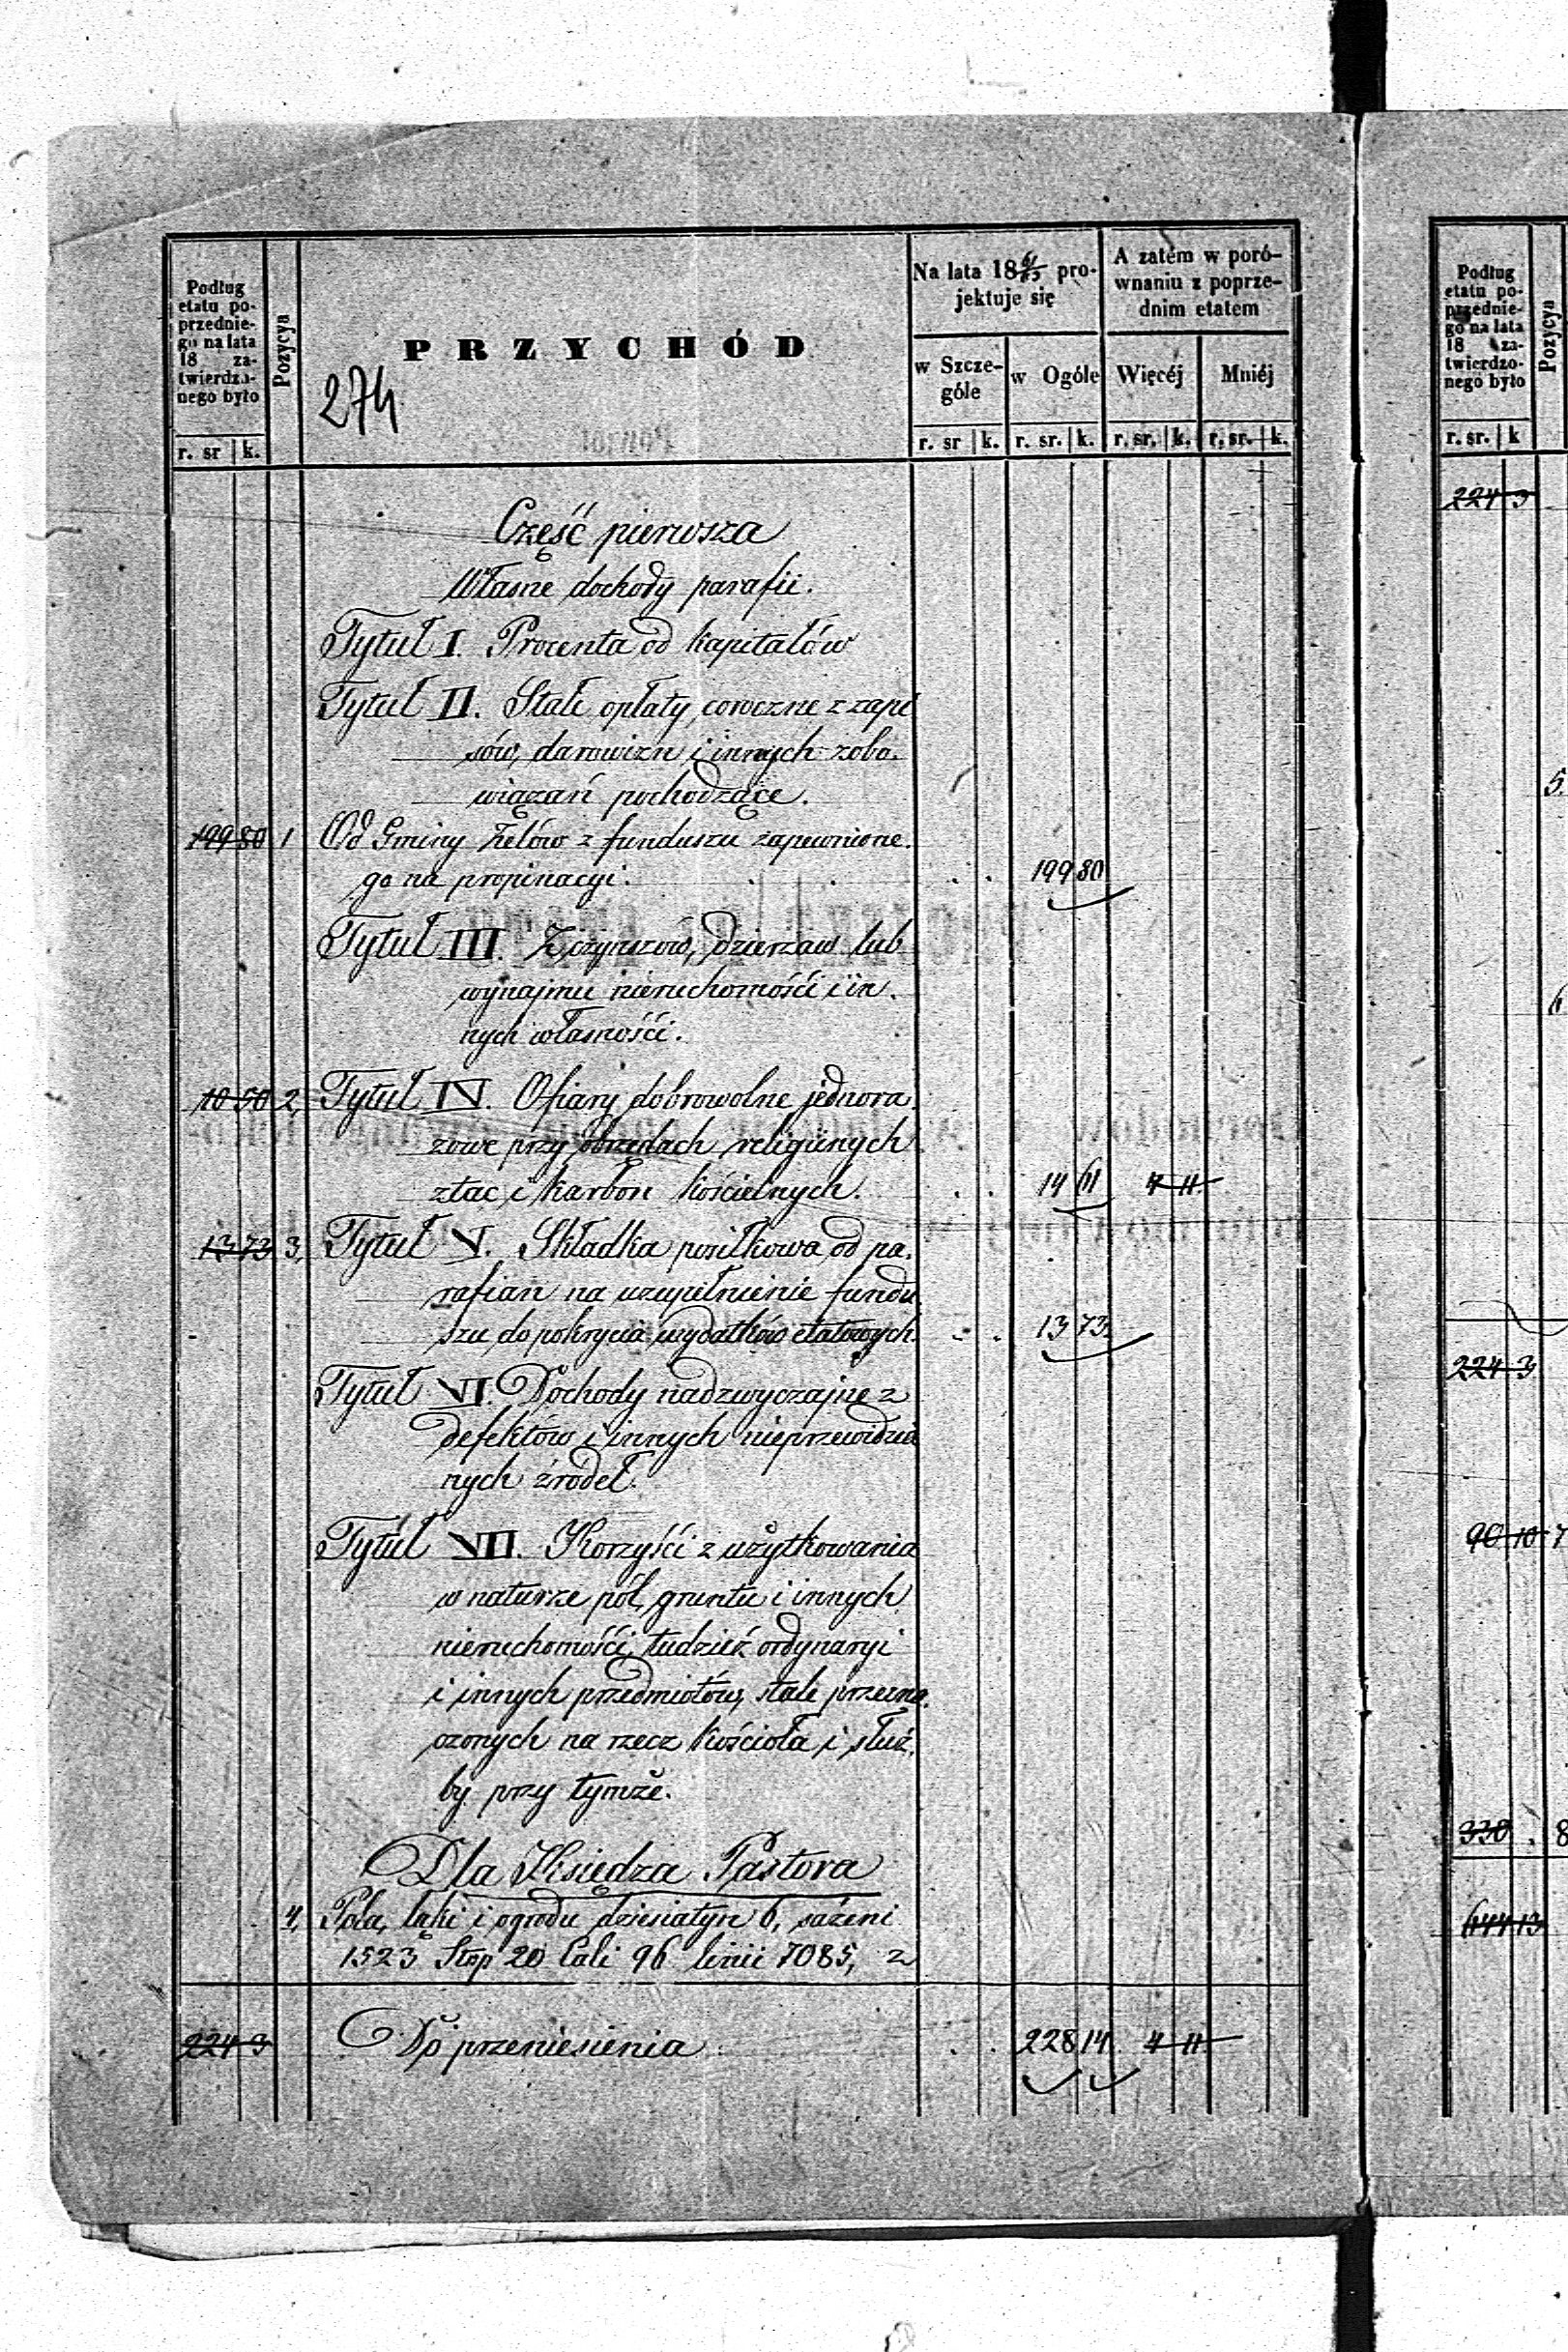 Podług
etatu po-
przednie-
go na lata
18 za-
twierdzo-
nego było
Pozycya
PRZYCHÓD
274
Na lata 18 pro-
jektuje się
A zatém w poró-
wnaniu z poprze-
dnim etatem
w Szcze-
góle
w Ogóle
Więcéj
Mniéj
r. sr k.
r. sr k. r. sr. k. r. sr. k. r. sr. k.
Część pierwsza
Własne dochody parafii.
Tytuł I. Procenta od kapitałów
Tytuł II. Stałe opłaty, coroczne z zapi
sów, darowizn i innych zobo-
wiązań pochodzące.
199 80 1 Od Gminy Zelów z funduszu zapewnione-
go na propinacyi. 199 80
Tytuł III. Z czynszów, dzierżaw lub
wynajmu nieruchomości i in-
nych własności.
10 50 2, Tytuł IV. Ofiary dobrowolne jednora
zowe przy obrzędach religijnych
z tac i karbon kościelnych. 14 61 4 11
13 73 3, Tytuł V. Składka posiłkowa od pa-
rafian na uzupełnienie fundu
szu do pokrycia wydatków etatowych. 13 73
Tytuł VI. Dochody nadzwyczajne z
defektów i innych nieprzewidzia
nych źródeł.
Tytuł VII. Korzyści z użytkowania
w naturze pól, gruntu i innych
nieruchomości, tudzież ordynaryi
i innych przedmiotów, stale przezna-
czonych na rzecz kościoła i służ-
by przy tymże.
Dla Księdza Pastora
4, Pola, łąki i ogrodu dziesiatyn 6, sażeni
1523 Stop 20 Cali 96 linii 7085, z
224 3 Do przeniesienia 228 14 4 11
Podług
etatu po-
przednie-
go na lata
18 za-
twierdzo-
nego było
Pozycya
r. sr. k
224 3
5.
6
224 3
90 10 7
330 . 8
644 13